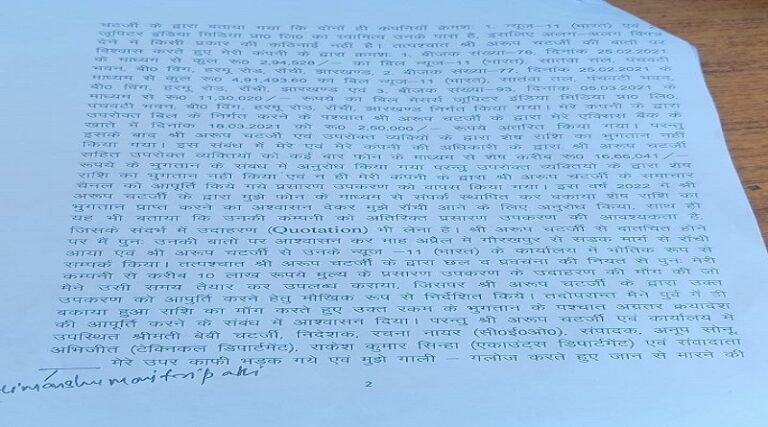 चटर्जी के द्वारा बताया गया कि दोनों ही कंपनियाँ क्रमशः 1. न्यूज–11 (भारत) एवं 2.
जूपिटर इंडिया मिडिया प्रा० लि० का स्वामित्व उनके पास है, इसलिए अलग-अलग विपत्र
देने में किसी प्रकार की कठिनाई नहीं है। तत्पश्चात श्री अरूप चटर्जी की बातों पर
विश्वास करते हुए मेरी कंपनी के द्वारा क्रमशः 1. बीजक संख्या–76, दिनांक 25.02.2021
के माध्यम से कुल रू० 2,94,528/– का बिल न्यूज–11 (भारत), सातवा तल, पंचवटी
भवन, बी० विंग, हरमू रोड, राँची, झारखण्ड, 2. बीजक संख्या–77, दिनांक 25.02.2021 के
माध्यम से कुल रू० 4,91,493.60 का बिल न्यूज–11 (भारत), सातवां तल, पंचवटी भवन,
बी० विंग, हरमू रोड, राँची, झारखण्ड एवं 3. बीजक संख्या–93, दिनांक 05.03.2021 के
माध्यम से रू० 11,30,020/– रूपये का बिल मेसर्स जूपिटर इंडिया मिडिया प्रा० लि०,
पंचवटी भवन, बी० विंग, हरमू रोड, राँची, झारखण्ड निर्गत किया गया। मेरे कंपनी के द्वारा
उपरोक्त बिल के निर्गत करने के पश्चात श्री अरूप चटर्जी के द्वारा मेरे एक्सिस बैंक के
खाते में दिनांक 18.03.2021 को रू० 2,50,000/– रूपये अंतरित किया गया। परन्तु
इसके बाद श्री अरूप चटर्जी एवं उपरोक्त व्यक्तियों के द्वारा शेष राशि का भुगतान नहीं
किया गया। इस संबंध में मेरे एवं मेरे कंपनी की अधिकारी के द्वारा श्री अरूप चटर्जी
सहित उपरोक्त व्यक्तियों को कई बार फोन के माध्यम से शेष करीब रू० 16,66,041/–
रूपये के भुगतान के संबध में अनुरोध किया गया परन्तु उपरोक्त व्यक्तियों के द्वारा शेष
राशि का भुगतान नहीं किया एवं न ही मेरी कंपनी के द्वारा श्री अरूप चटर्जी के समाचार
चैनल को आपूर्ति किये गये प्रसारण उपकरण को वापस किया गया। इस वर्ष 2022 में श्री
अरूप चटर्जी के द्वारा मुझे फोन के माध्यम से संपर्क स्थापित कर बकाया शेष राशि का
भुगतान प्राप्त करने का अश्वासन देकर मुझे राँची आने के लिए अनुरोध किया, साथ ही
यह भी बताया कि उनकी कम्पनी को अतिरिक्त प्रसारण उपकरण की आवश्यकता है,
जिसके संदर्भ में उदाहरण (Quotation) भी लेना है। श्री अरूप चटर्जी से बातचित होने
पर मैं पुनः उनकी बातो पर आश्वासन कर माह अप्रैल में गोरखपुर से सड़क मार्ग से राँची
आया एवं श्री अरूप चटर्जी से उनके न्यूज –11 (भारत) के कार्यालय में भौतिक रूप से
सम्पर्क किया। तत्पश्चात श्री अरूप चटर्जी के द्वारा छल व प्रवंचना की नियत से पुनः मेरी
कम्पनी से करीब 10 लाख रूपये मुल्य के प्रसारण उपकरण के उदाहरण की माँग की जो
मैने उसी समय तैयार कर उपलब्ध कराया, जिसपर श्री अरूप चटर्जी के द्वारा उक्त
उपकरण को आपुर्ति करने हेतु मौखिक रूप से निर्देशित किये। तदोपरान्त मैने पुर्व में ही
बकाया हुआ राशि का माँग करते हुए उक्त रकम के भुगतान के पश्चात अंतत्तर क्रयादेश
की आपुर्ति करने के संबंध में आश्वासन दिया। परन्तु श्री अरूप चटर्जी एवं कार्यालय में
उपस्थित श्रीमती बेबी चटर्जी, निदेशक, रचना नायर (सी०ई०ओ०), संपादक, अनूप सोनू,
अभिजीत (टेक्निकल डिपार्टमेंट), राकेश कुमार सिन्हा (एकाउंट्स डिपार्टमेंट) एवं संवादाता
मेरे उपर काफी भड़क गये एवं मुझे गाली – गलोज करते हुए जान से मारने की
2